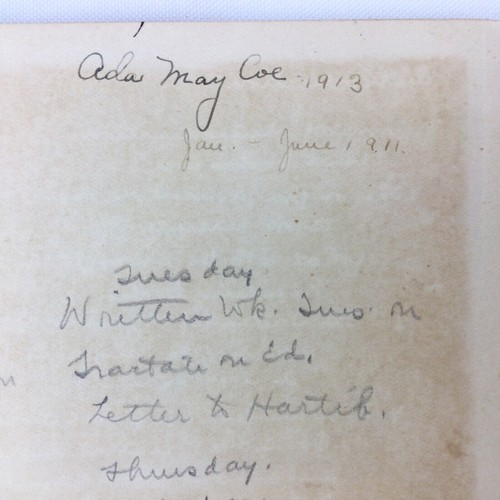 Ada May Coe 1913
Jan. - June 1911.
Tuesday
Written Wk. Tues. on
Tractate on Ed.
Letter to Hartlib.
Thursday.